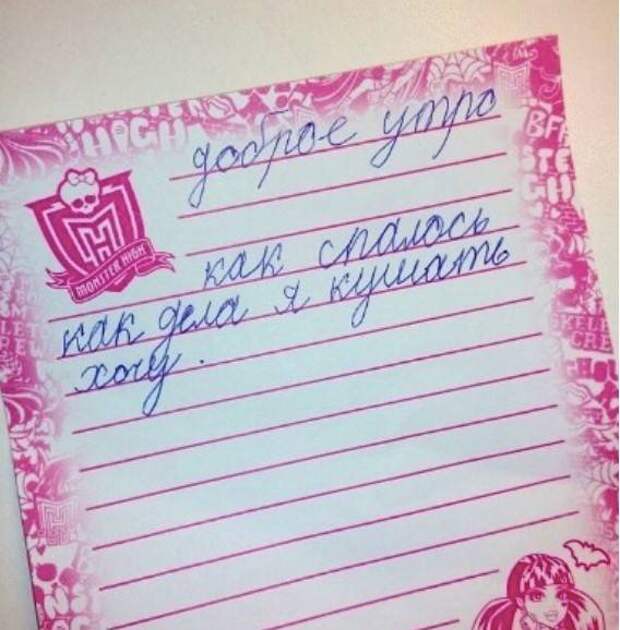 HIGH
MONSTER HIGH
BFF
доброе утро
как спалось
как дела я кушать
хочу.